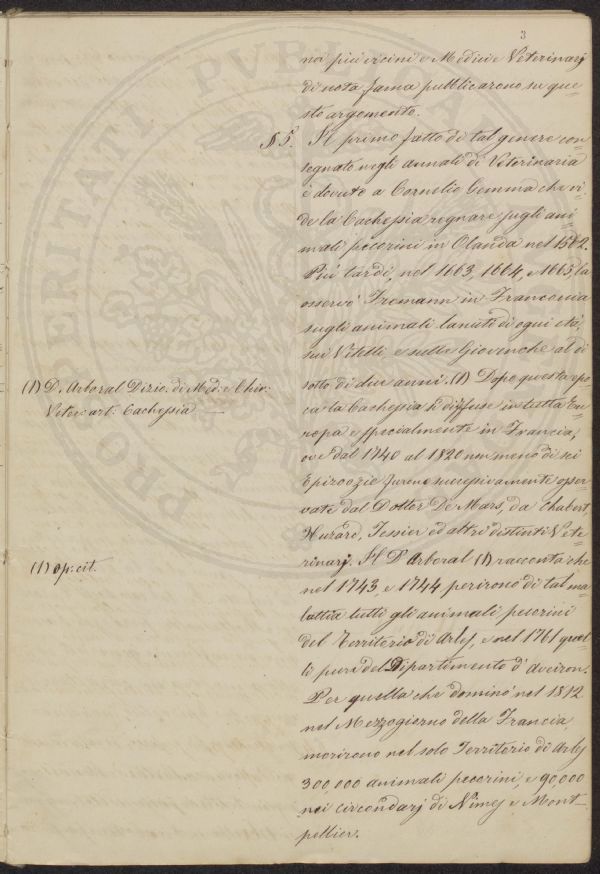 3
noi più vicini e Medici e Veterinarj
di nota fama pubblicarono su que=
sto argomento.
§ 5. Il primo fatto di tal genere con=
segnato negli annali di Veterinaria
è dovuto a Cornelio Gemma che vi=
de la Cachessia regnare sugli ani=
mali pecorini in Olanda nel 1562.
Più tardi, nel 1663, 1664, e 1665, la
osservò Fromann in Franconia
sugli animali lanuti di ogni età,
sui Vitelli, e sulle Giovenche al di
sotto di due anni. (1) Dopo questa epo=
ca la Cachessia si diffuse in tutta Eu=
ropa e specialmente in Francia,
ove dal 1740 al 1820 non meno di sei
Epizoozie furono successivamente osser=
vate dal Dottor De Mars, da Chabert,
Huzard, Tessier ed altri distinti Vete=
rinarj. Il D'Arboral (1) racconta che
nel 1743, e 1744 perirono di tal ma=
lattia tutti gli animali pecorini
del Territorio di Arles, e nel 1761 quel=
li pure del Dipartimento d'Aveiron.
Per quella che dominò nel 1812
nel Mezzogiorno della Francia
morirono nel solo Territorio di Arles
300,000 animali pecorini, e 90,000
nei circondarj di Nimes e Mont=
pellier.
(1) D. Arboral Dizio: di Med: e Chir:
Veter: art: Cachessia
(1) op. cit.
PRO
PVBLICAE